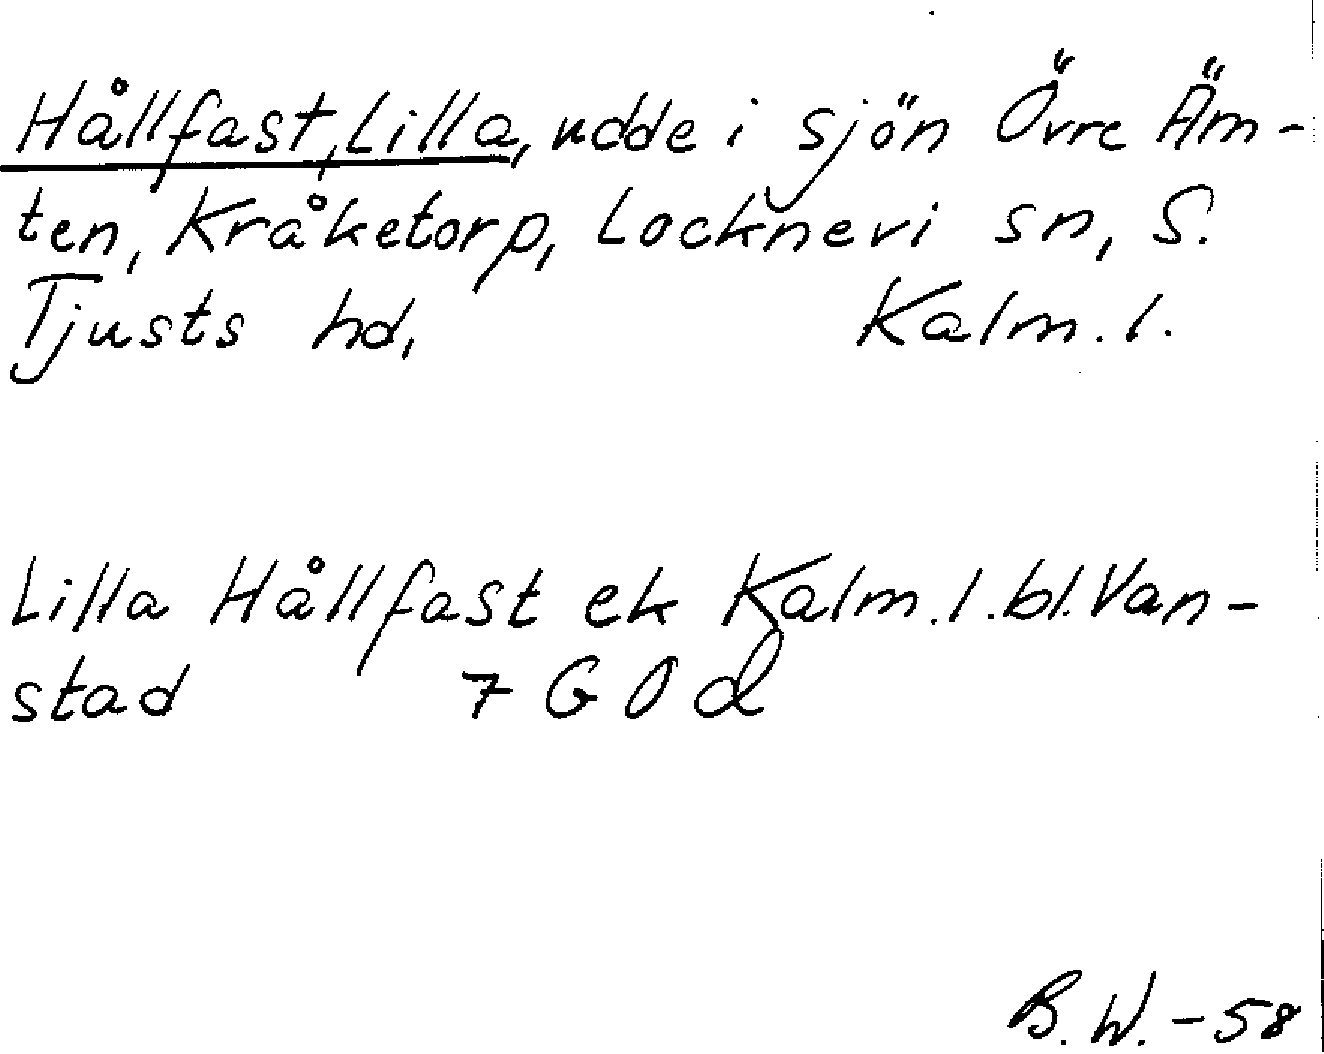 Hållfast, Lilla, udde i sjön Övre Äm-
ten, Kråketorp, Locknevi sn, S.
Tjusts hd, Kalm. l.
Lilla Hållfast ek Kalm. l. bl. Van-
stad 7 G O d
B. W. - 58